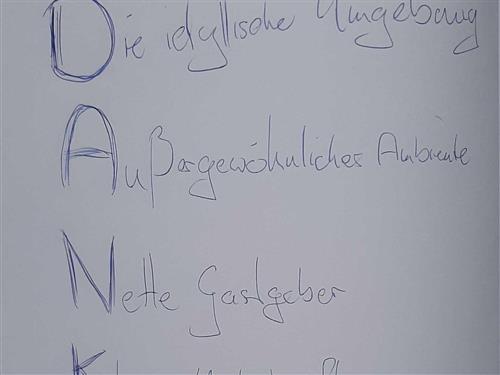 Die idyllische Umgebung
Außergewöhnliches Ambiente
Nette Gastgeber
K